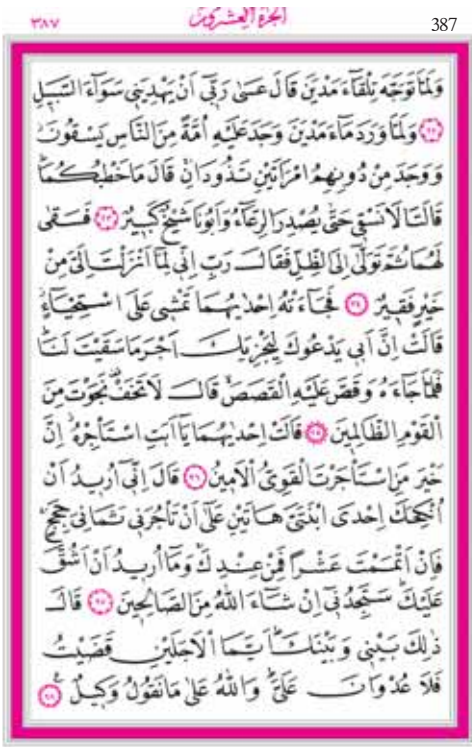 ٣٨٧ الجزء العشرون 387
وَلَمَّا تَوَجَّهَ تِلْقَٓاءَ مَدْيَنَ قَالَ عَسٰى رَبّٖٓي اَنْ يَهْدِيَنٖي سَوَٓاءَ السَّبٖيلِ
﴿٢٢﴾ وَلَمَّا وَرَدَ مَٓاءَ مَدْيَنَ وَجَدَ عَلَيْهِ اُمَّةً مِنَ النَّاسِ يَسْقُونَۘ
وَوَجَدَ مِنْ دُونِهِمُ امْرَاَتَيْنِ تَذُودَانِۚ قَالَ مَا خَطْبُكُمَاۜ
قَالَتَا لَا نَسْقٖي حَتّٰى يُصْدِرَ الرِّعَٓاءُ وَاَبُونَا شَيْخٌ كَبٖيرٌ ﴿٢٣﴾ فَسَقٰى
لَهُمَا ثُمَّ تَوَلّٰٓى اِلَى الظِّلِّ فَقَالَ رَبِّ اِنّٖي لِمَٓا اَنْزَلْتَ اِلَيَّ مِنْ
خَيْرٍ فَقٖيرٌ ﴿٢٤﴾ فَجَٓاءَتْهُ اِحْدٰيهُمَا تَمْشٖي عَلَى اسْتِحْيَٓاءٍۘ
قَالَتْ اِنَّ اَبٖي يَدْعُوكَ لِيَجْزِيَكَ اَجْرَ مَا سَقَيْتَ لَنَاۜ
فَلَمَّا جَٓاءَهُ وَقَصَّ عَلَيْهِ الْقَصَصَۙ قَالَ لَا تَخَفْ۠ نَجَوْتَ مِنَ
الْقَوْمِ الظَّالِمٖينَ ﴿٢٥﴾ قَالَتْ اِحْدٰيهُمَا يَٓا اَبَتِ اسْتَأْجِرْهُۘ اِنَّ
خَيْرَ مَنِ اسْتَأْجَرْتَ الْقَوِيُّ الْاَمٖينُ ﴿٢٦﴾ قَالَ اِنّٖٓي اُرٖيدُ اَنْ
اُنْكِحَكَ اِحْدَى ابْنَتَيَّ هَاتَيْنِ عَلٰٓى اَنْ تَأْجُرَنٖي ثَمَانِيَ حِجَجٍۚ
فَاِنْ اَتْمَمْتَ عَشْرًا فَمِنْ عِنْدِكَۚ وَمَٓا اُرٖيدُ اَنْ اَشُقَّ
عَلَيْكَۜ سَتَجِدُنٖٓي اِنْ شَٓاءَ اللّٰهُ مِنَ الصَّالِحٖينَ ﴿٢٧﴾ قَالَ
ذٰلِكَ بَيْنٖي وَبَيْنَكَۜ اَيَّمَا الْاَجَلَيْنِ قَضَيْتُ
فَلَا عُدْوَانَ عَلَيَّۜ وَاللّٰهُ عَلٰى مَا نَقُولُ وَكٖيلٌ۟ ﴿٢٨﴾